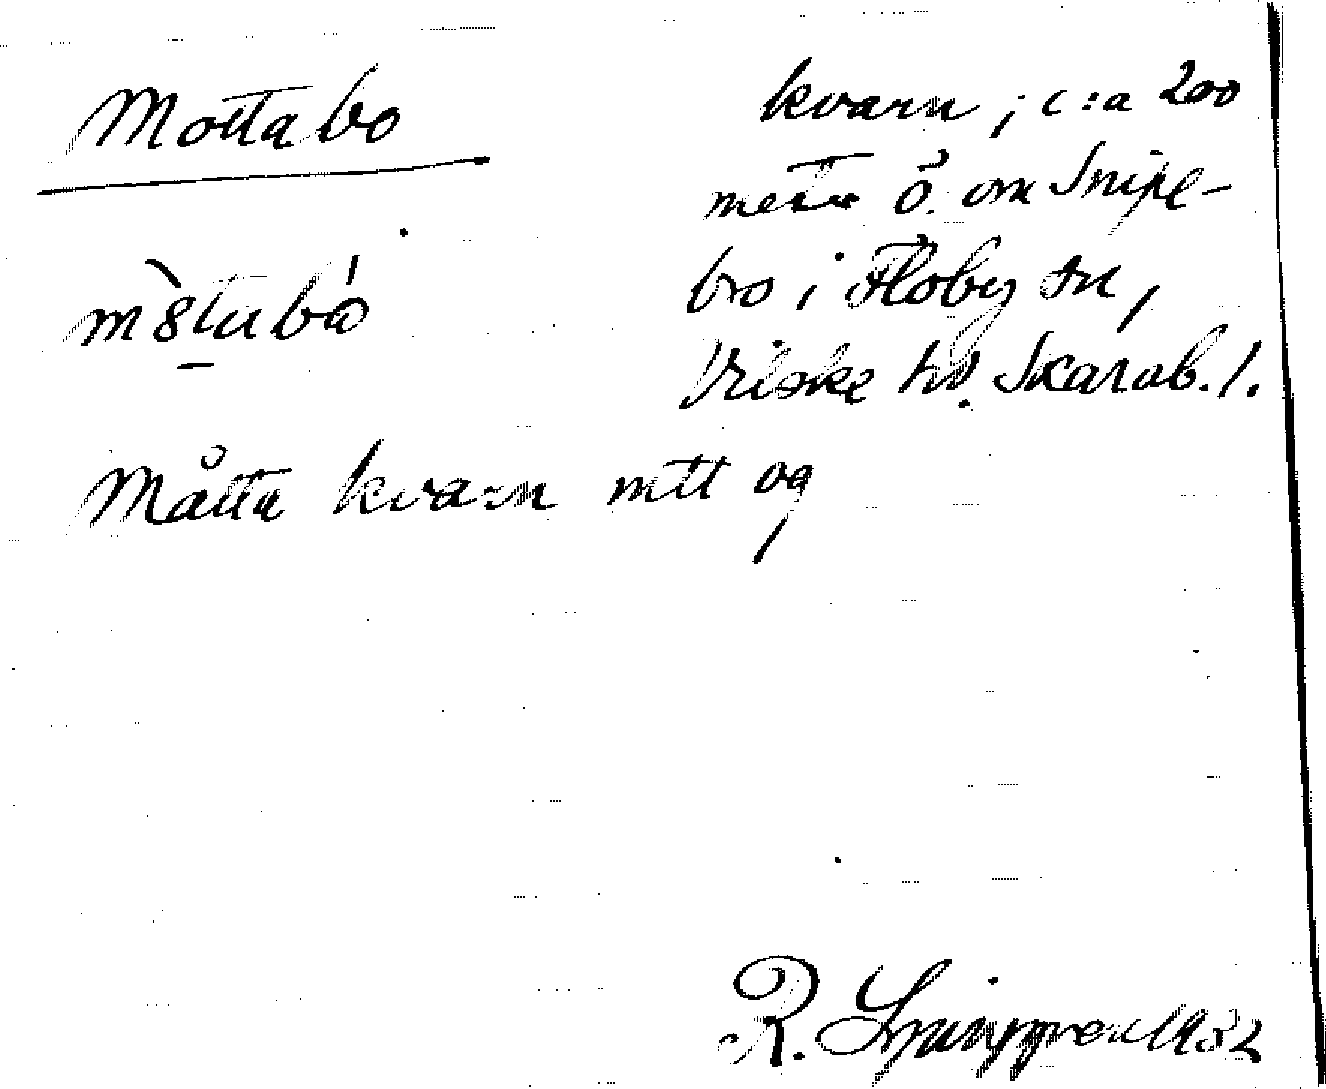 Mottabo
kvarn; c:a 200
meter ö. om Snipe-
bro i Floby sn,
Vilske hd. Skarab. l.
Måtta kvarn mtt og
R. Ljunggren 1932